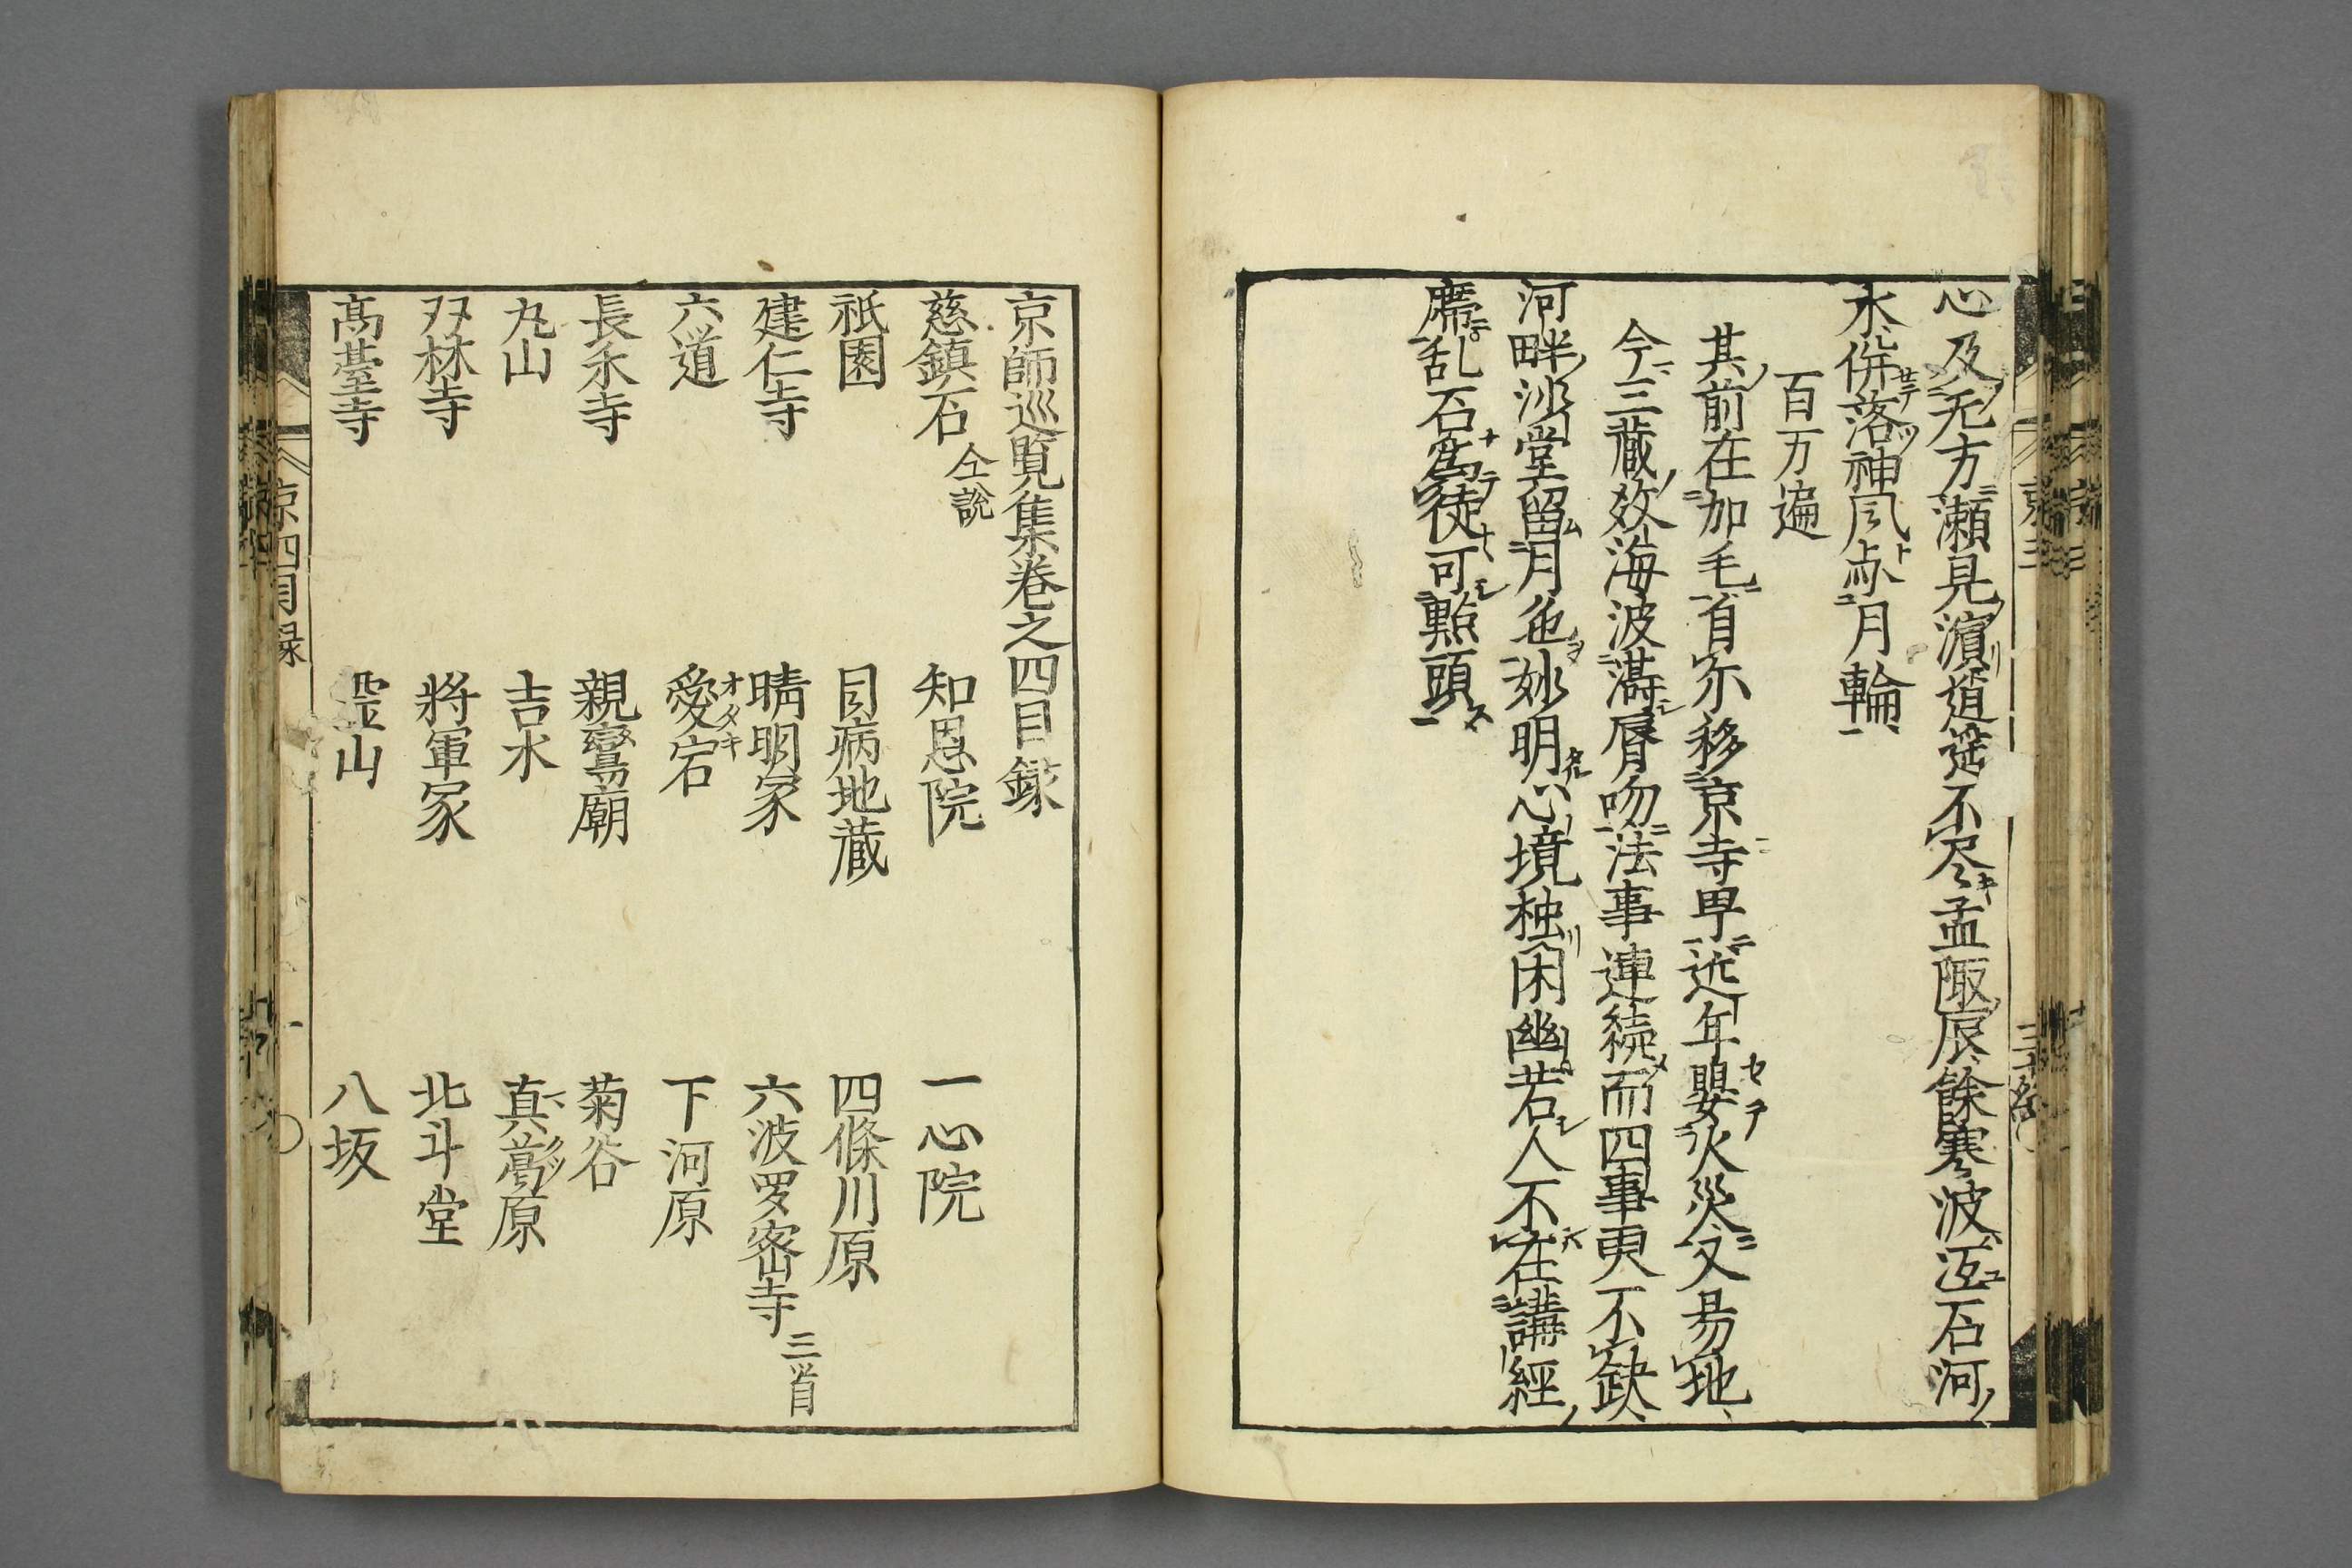 心及无方瀬見濵道筵不尽孟陬辰餘寒波沍石河
水併落神風点月輪
百万遍
其前在加毛首尓移京寺早近年嬰火災又易地
今三蔵效海波満脣吻法事連続而四事更不缺
河畔沙堂留月色妙明心境独閑幽若人不在講経
席乱石為徒可點頭
京師巡覧集巻之四目録
慈鎮石 仝説 知恩院 一心院
祇園 目病地蔵 四條川原
建仁寺 晴明冢 六波罗密寺 三首
六道 愛宕 下河原
長永寺 親鸞廟 菊谷
丸山 吉水 真葛原
双林寺 将軍冢 北斗堂
髙臺寺 霊山 八坂
京四目録 一